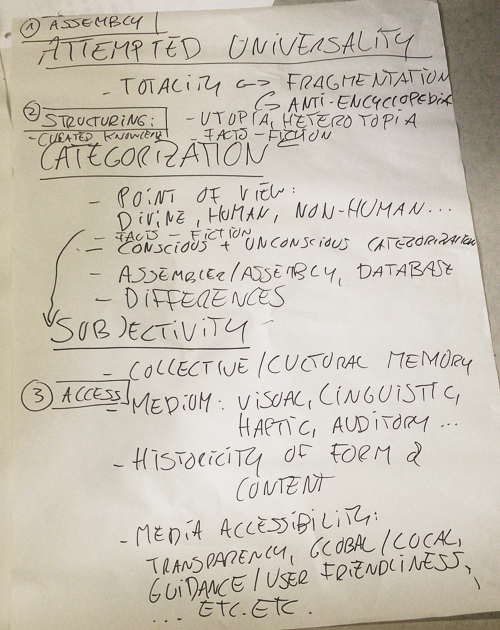 ① ASSEMBLY
ATTEMPTED UNIVERSALITY
- TOTALITY <-> FRAGMENTATION
↳ ANTI-ENCYCLOPEDIA
② STRUCTURING: - UTOPIA, HETEROTOPIA
- CURATED KNOWLEDGE - FACTS - FICTION
CATEGORIZATION
- POINT OF VIEW:
DIVINE, HUMAN, NON-HUMAN...
- FACTS - FICTION
- CONSCIOUS + UNCONSCIOUS CATEGORIZATION
- ASSEMBLER/ASSEMBLY, DATABASE
- DIFFERENCES
SUBJECTIVITY -
- COLLECTIVE/CULTURAL MEMORY
③ ACCESS - MEDIUM: VISUAL, LINGUISTIC,
HAPTIC, AUDITORY ...
- HISTORICITY OF FORM &
CONTENT
- MEDIA ACCESSIBILITY:
TRANSPARENCY, GLOBAL/LOCAL,
GUIDANCE/USER FRIENDLINESS,
... ETC. ETC.